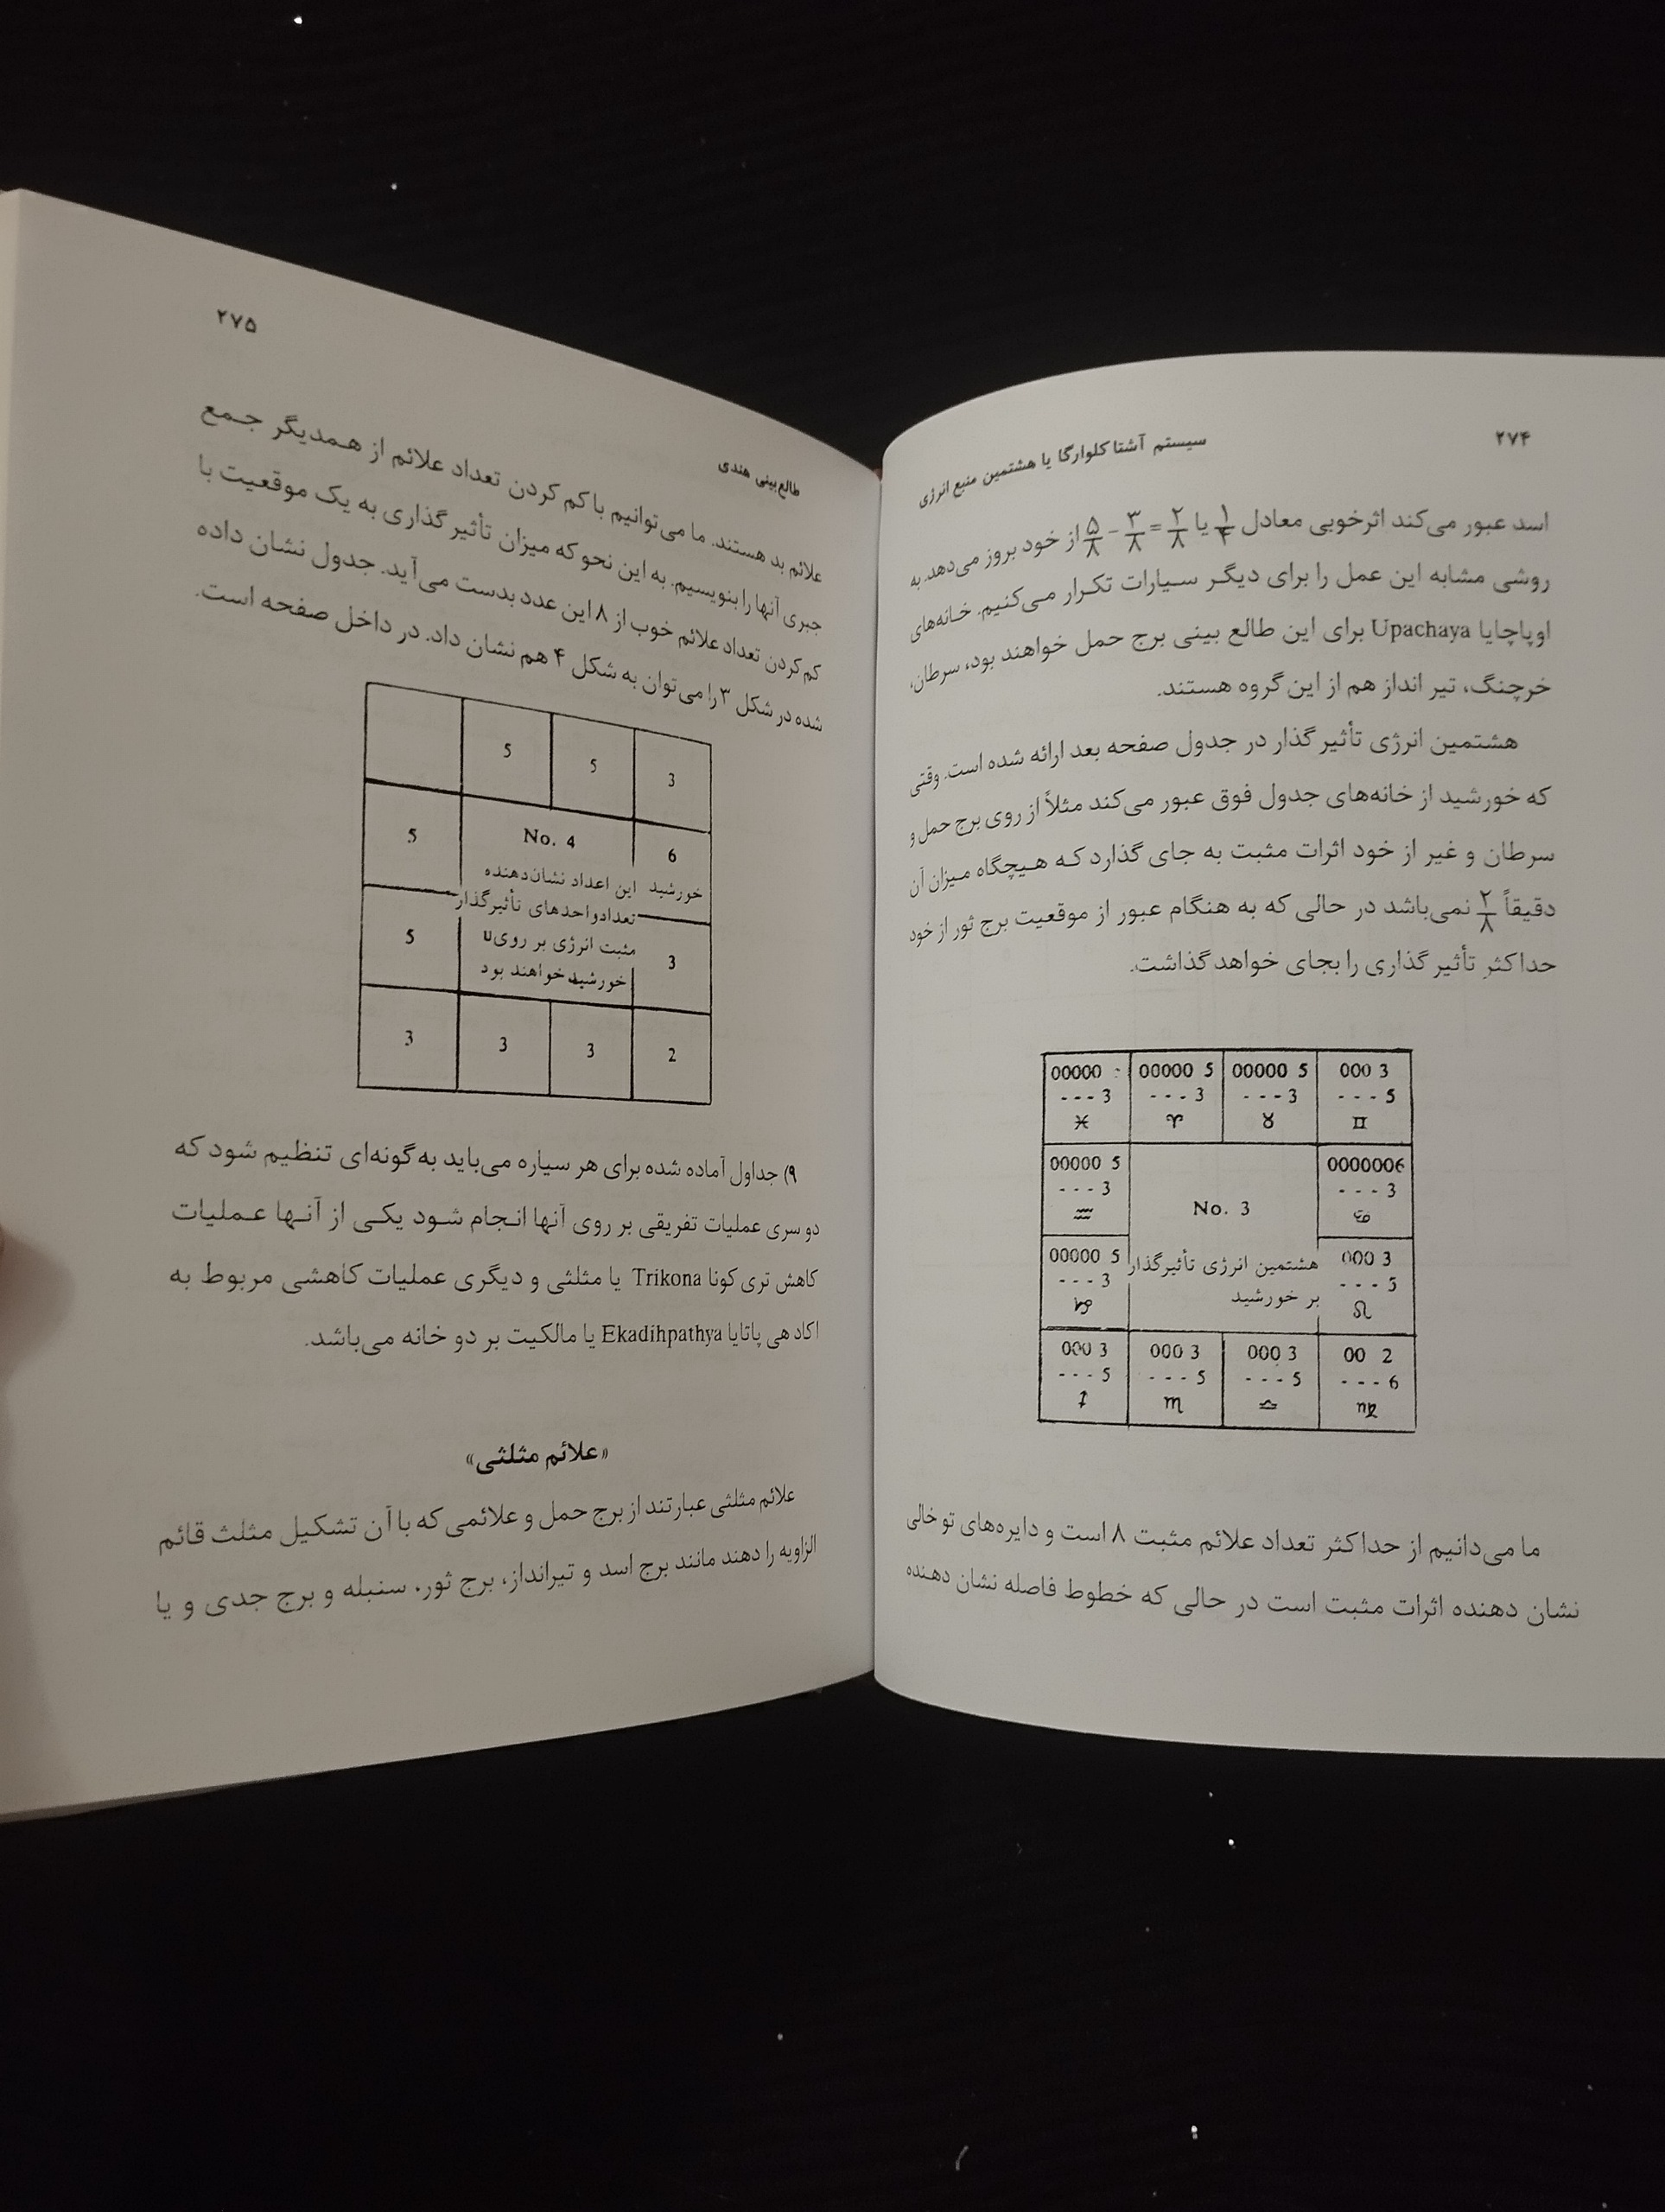 ۲۷۴
سیستم آشتا کلوارگا یا هشتمین منبع انرژی
اسد عبور می‌کند اثرخوبی معادل ۱/۴ یا ۲/۸ = ۳/۸ - ۵/۸ از خود بروز می‌دهد. به
روشی مشابه این عمل را برای دیگر سیارات تکرار می‌کنیم. خانه‌های
اوپاچایا Upachaya برای این طالع بینی برج حمل خواهند بود، سرطان،
خرچنگ، تیر انداز هم از این گروه هستند.
هشتمین انرژی تأثیر گذار در جدول صفحه بعد ارائه شده است. وقتی
که خورشید از خانه‌های جدول فوق عبور می‌کند مثلاً از روی برج حمل و
سرطان و غیر از خود اثرات مثبت به جای گذارد که هیچگاه میزان آن
دقیقاً ۲/۸ نمی‌باشد در حالی که به هنگام عبور از موقعیت برج ثور از خود
حداکثرِ تأثیر گذاری را بجای خواهد گذاشت.
00000 00000 5 00000 5 000 3
- - - 3 - - - 3 - - - 3 - - - 5
♓ ♈ ♉ ♊
00000 5 0000006
- - - 3 - - - 3
♒ No. 3 ♋
00000 5 هشتمین انرژی تأثیرگذار 000 3
- - - 3 بر خورشید - - - 5
♑ ♌
000 3 000 3 000 3 00 2
- - - 5 - - - 5 - - - 5 - - - 6
♐ ♏ ♎ ♍
ما می‌دانیم از حداکثر تعداد علائم مثبت ۸ است و دایره‌های تو خالی
نشان دهنده اثرات مثبت است در حالی که خطوط فاصله نشان دهنده
۲۷۵
طالع‌بینی هندی
علائم بد هستند. ما می‌توانیم با کم کردن تعداد علائم از همدیگر جمع
جبری آنها را بنویسیم. به این نحو که میزان تأثیر گذاری به یک موقعیت با
کم کردن تعداد علائم خوب از ۸ این عدد بدست می‌آید. جدول نشان داده
شده در شکل ۳ را می‌توان به شکل ۴ هم نشان داد. در داخل صفحه است.
5 5 3
5 No. 4 6
این اعداد نشان‌دهنده خورشید
تعدادواحدهای تأثیرگذار
5 مثبت انرژی بر رویu 3
خورشید خواهند بود
3 3 3 2
۹) جداول آماده شده برای هر سیاره می‌باید به‌گونه‌ای تنظیم شود که
دو سری عملیات تفریقی بر روی آنها انجام شود یکی از آنها عملیات
کاهش تری کونا Trikona یا مثلثی و دیگری عملیات کاهشی مربوط به
اکاد هی پاتایا Ekadihpathya یا مالکیت بر دو خانه می‌باشد.
«علائم مثلثی»
علائم مثلثی عبارتند از برج حمل و علائمی که با آن تشکیل مثلث قائم
الزاویه را دهند مانند برج اسد و تیرانداز، برج ثور، سنبله و برج جدی و یا